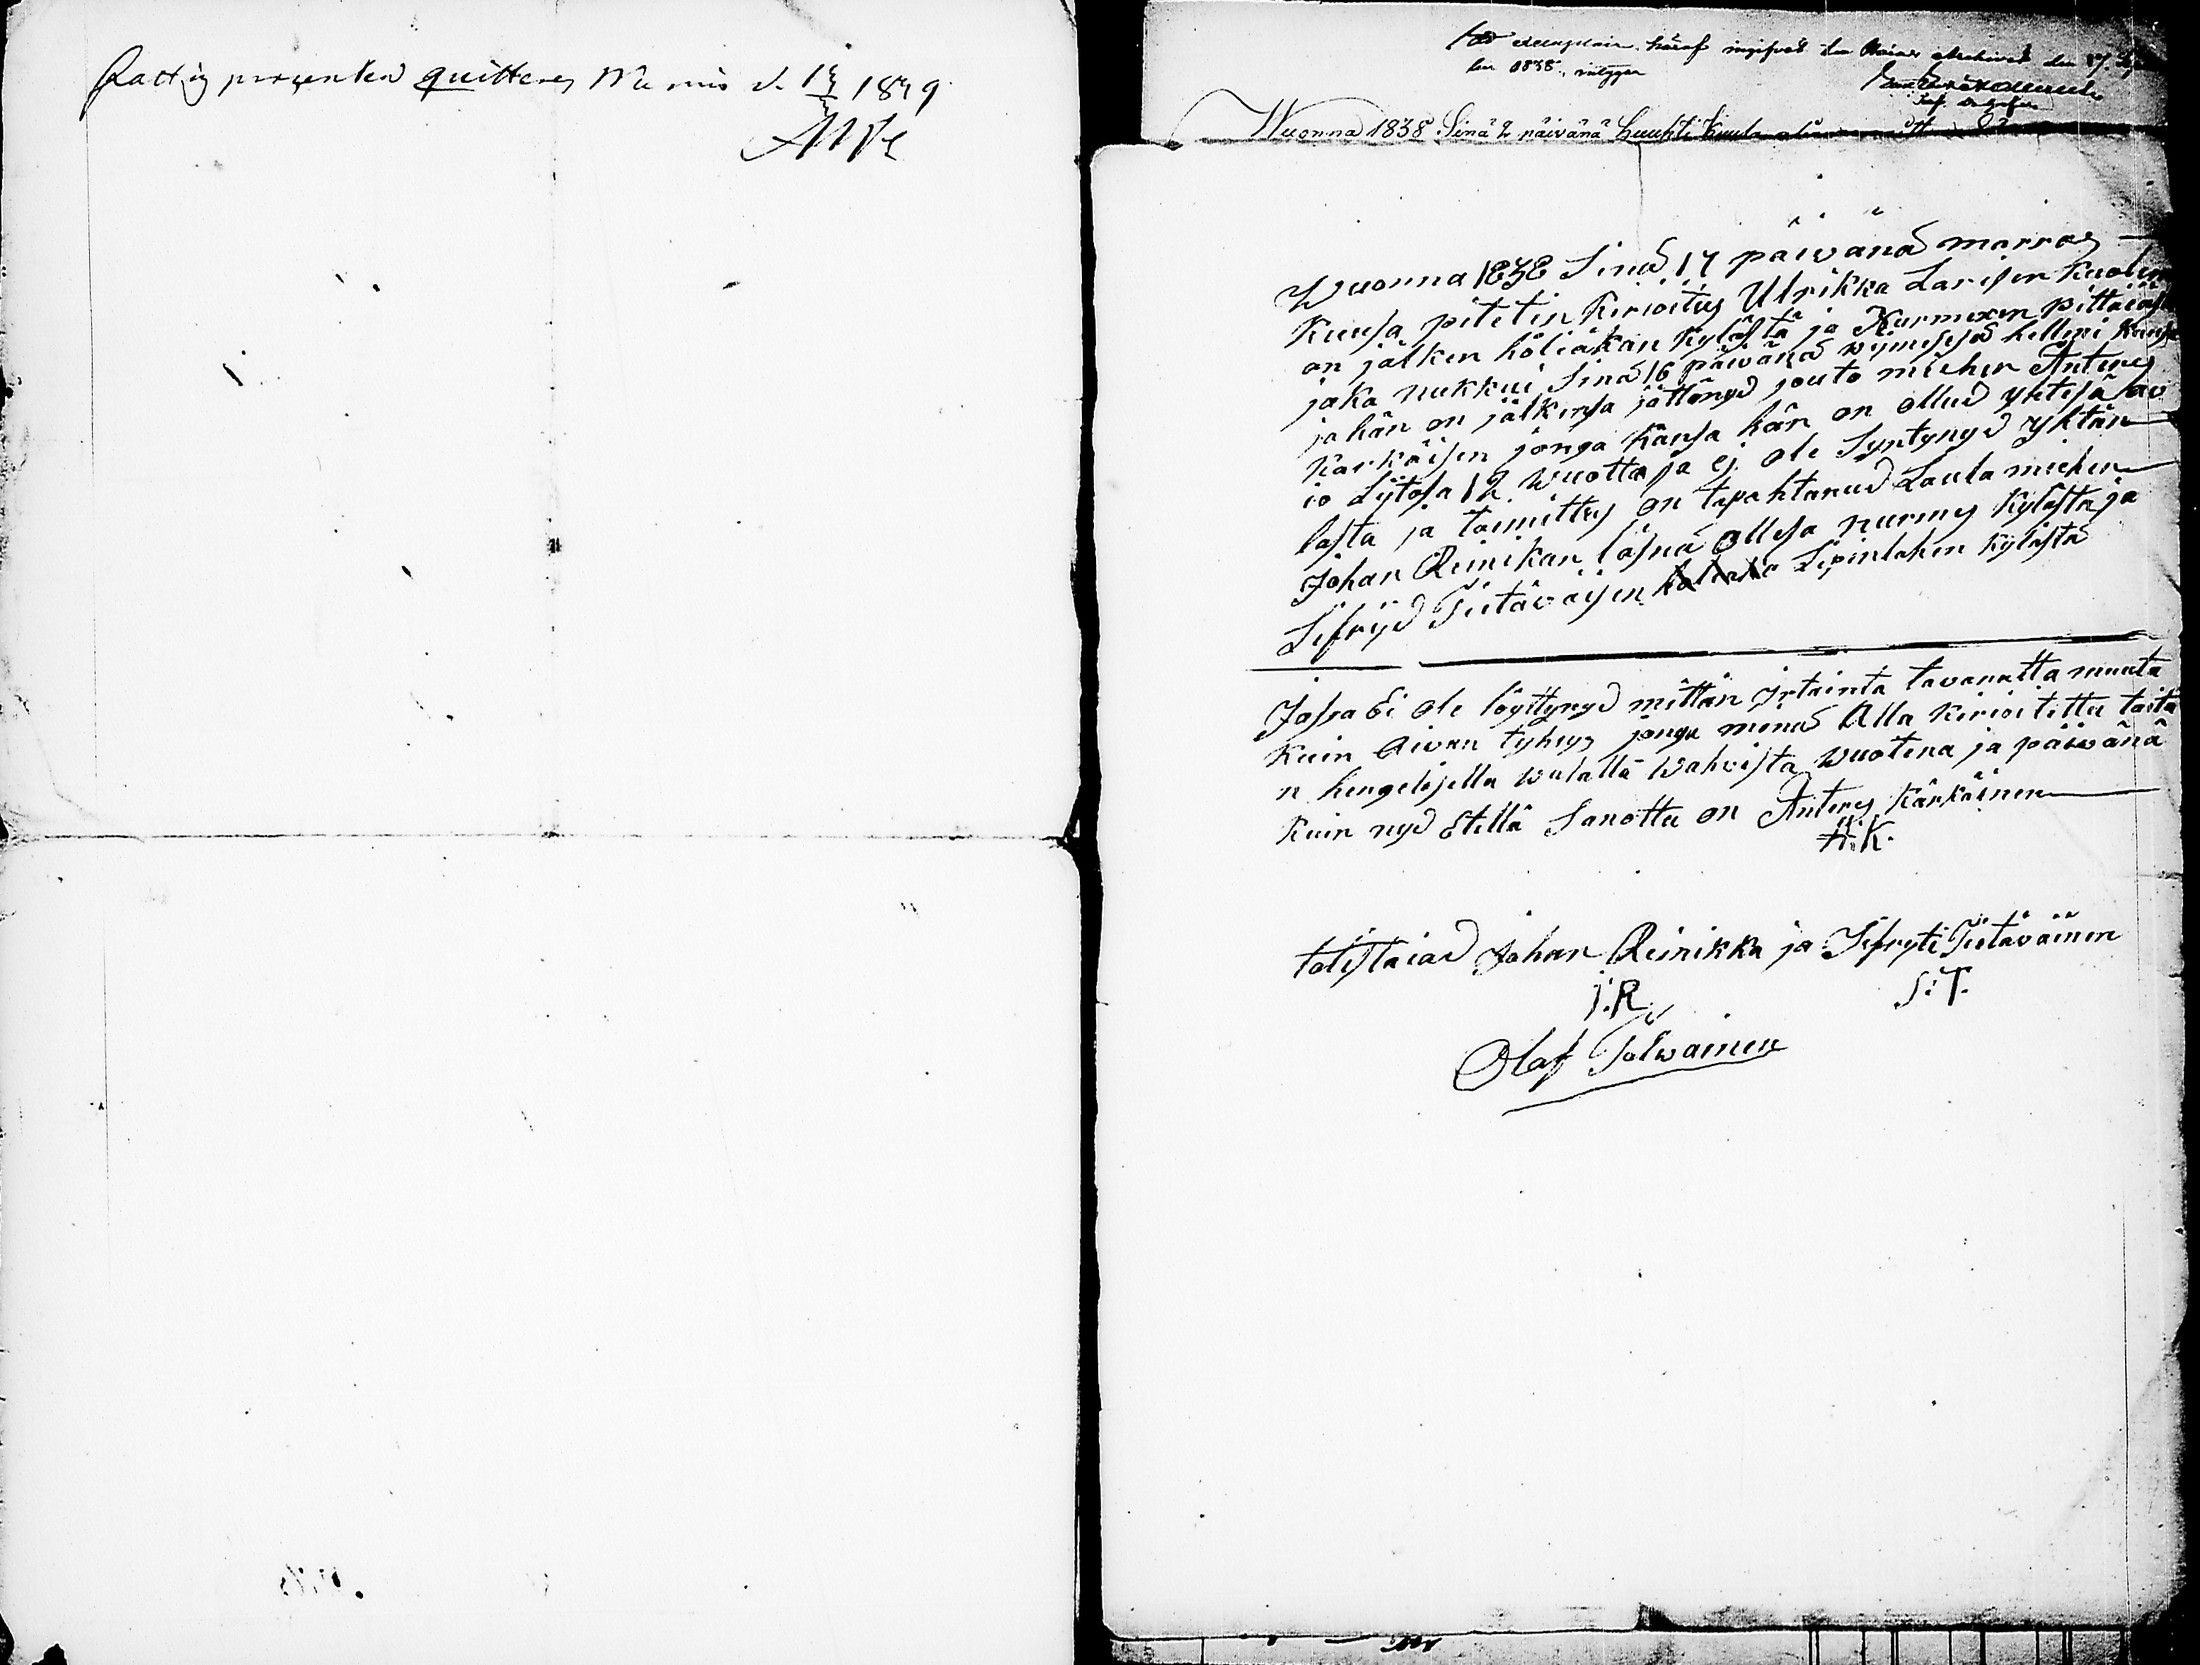 Fattig procenten quitteras Nurmis d. 13/3 1839
Wuonna 1838 Sinä 2 päivänä huuhti kuula
Wuonna 1838 Sinä 17 päivänä marras
Kuusa pitetin Kirioitus Ulrikka Larisen Kuolem
an jälken höliäkän Kylästä ja Nurmexen pittäiäst
joka nukkui Sinä 16 päivänä wijmesesä hellmi Kuusa
ja hän on jälkensä jättänyd jouto miehen Anterus
Kärkäisen jonga Kansa hän on ollud yhtesä av
io Sytosa 12 wuotta ja ej ole Syntynyd yhtän
lasta ja toimittus on tapahtanud Lauta miehen
Johan Reinikan läsnä ollesa nurmes Kylästä ja
Sifryd Tietäväisen Sipinlahen Kylästä
Josa Ei ole löyttynyd mittän jrtainta tavaratta muuta
Kuin aivan tyhyys jonga minä Alla Kirioitettu taitta
n hengelisella walalla wahvista wuotena ja päiwänä
Kuin nyd Etellä Sanottu on Anterus Kärkäinen
A.K.
totistaiad Johan Reinikka ja Sifryti Tietäväinen
J.R. S.T.
Olaf Tolwainen